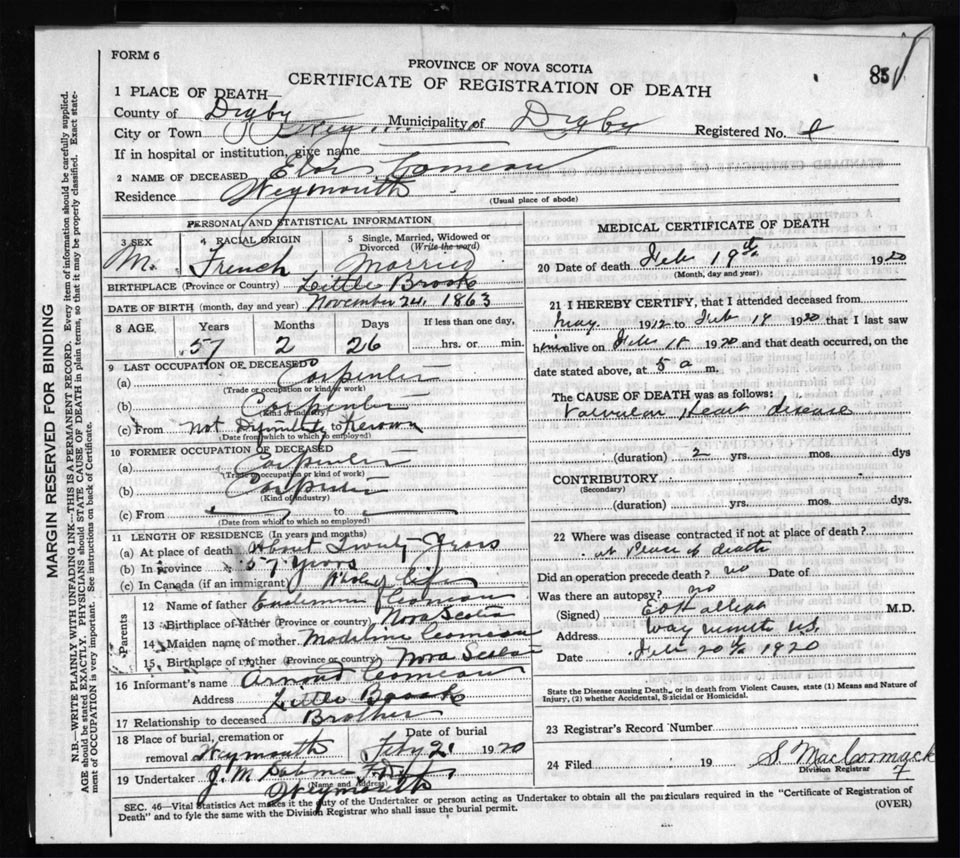 FORM 6
85
PROVINCE OF NOVA SCOTIA
CERTIFICATE OF REGISTRATION OF DEATH
1 PLACE OF DEATH—
County of Digby
City or Town Municipality of Digby Registered No.
If in hospital or institution, give name
2 NAME OF DECEASED Comeau
Residence Weymouth
(Usual place of abode)
PERSONAL AND STATISTICAL INFORMATION
3 SEX M. 4 RACIAL ORIGIN French 5 Single, Married, Widowed or Divorced (Write the word) Married
BIRTHPLACE (Province or Country) Little Brook
DATE OF BIRTH (month, day and year) November 24, 1863
8 AGE Years 57 Months 2 Days 26 If less than one day, hrs. or min.
9 LAST OCCUPATION OF DECEASED
(a) Carpenter
(Trade or occupation or kind of work)
(b) Carpenter
(Kind of industry)
(c) From Not Definitely to Known
(Date from which to which so employed)
10 FORMER OCCUPATION OF DECEASED
(a) Carpenter
(Trade or occupation or kind of work)
(b) Carpenter
(Kind of industry)
(c) From to
(Date from which to which so employed)
11 LENGTH OF RESIDENCE (In years and months)
(a) At place of death About Twenty Years
(b) In province 57 years
(c) In Canada (if an immigrant) Whole of life
Parents
12 Name of father Comeau
13 Birthplace of father (Province or country) Nova Scotia
14 Maiden name of mother Madeline Comeau
15 Birthplace of mother (Province or country) Nova Scotia
16 Informant's name Comeau
Address Little Brook
17 Relationship to deceased Brother
18 Place of burial, cremation or removal Weymouth Date of burial Feby 21 1920
19 Undertaker J. M.
(Name and Address)
Weymouth
MEDICAL CERTIFICATE OF DEATH
20 Date of death Feb 19th 1920
(Month, day and year)
21 I HEREBY CERTIFY, that I attended deceased from
May 1912 to Feb 19 1920 that I last saw
him alive on Feb 18 1920 and that death occurred, on the
date stated above, at 5 a m.
The CAUSE OF DEATH was as follows:
Valvular Heart disease
(duration) 2 yrs. mos. dys
CONTRIBUTORY
(Secondary)
(duration) yrs. mos. dys.
22 Where was disease contracted if not at place of death?
at Place of death
Did an operation precede death? no Date of
Was there an autopsy? no
(Signed) M.D.
Address Weymouth N.S.
Date Feb 20th 1920
State the Disease causing Death, or in death from Violent Causes, state (1) Means and Nature of
Injury, (2) whether Accidental, Suicidal or Homicidal.
23 Registrar's Record Number
24 Filed 19 S. MacCormack
Division Registrar
SEC. 46—Vital Statistics Act makes it the duty of the Undertaker or person acting as Undertaker to obtain all the particulars required in the "Certificate of Registration of
Death" and to fyle the same with the Division Registrar who shall issue the burial permit. (OVER)
MARGIN RESERVED FOR BINDING
N.B.—WRITE PLAINLY WITH UNFADING INK—THIS IS A PERMANENT RECORD. Every item of information should be carefully supplied.
AGE should be stated EXACTLY. PHYSICIANS should STATE CAUSE OF DEATH in plain terms, so that it may be properly classified. Exact state-
ment of OCCUPATION is very important. See instructions on back of Certificate.